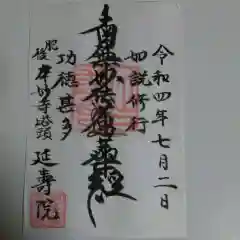 令和四年七月二日
如説修行
南無妙法蓮華経
功徳甚多
肥後本妙寺塔頭
延壽院